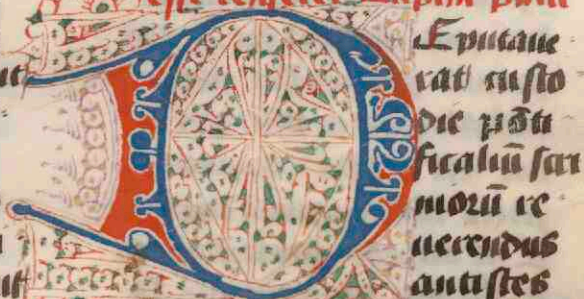 DEputaue
rat custo
die põti
ficaliū scri
niorū re
uerendus
antistes